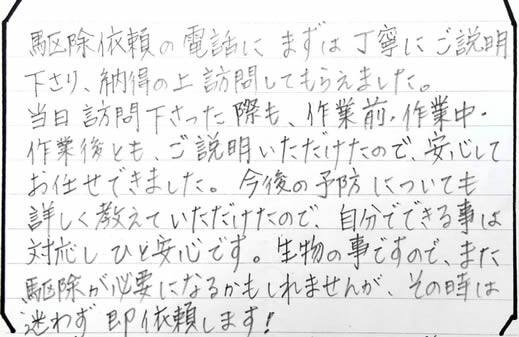 駆除依頼の電話にまずは丁寧にご説明
下さり、納得の上訪問してもらえました。
当日訪問下さった際も、作業前・作業中・
作業後とも、ご説明いただけたので、安心して
お任せできました。今後の予防についても
詳しく教えていただけたので、自分でできる事は
対応しひと安心です。生物の事ですので、また
駆除が必要になるかもしれませんが、その時は
迷わず即依頼します!